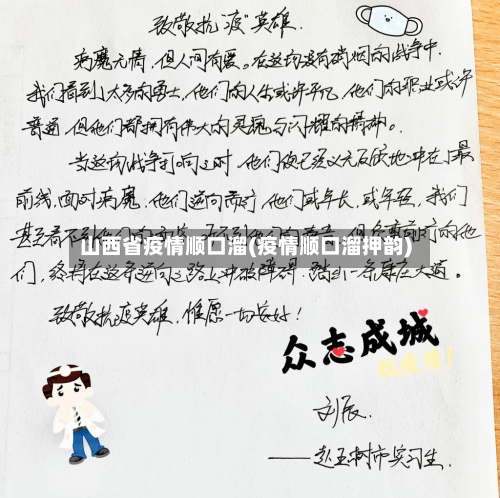 致敬抗"疫"英雄.
病魔无情,但人间有爱。在这场没有硝烟的战争中.
我们看到太多的勇士,他们的人生或许平凡,他们的职业或许
普通,但他们都拥有伟大的灵魂与闪耀的精神。
当这场战争打响之时,他们便已经义无反顾地冲在了最
前线,面对病魔,他们逆向而行,他们或年长,或年轻,我们
甚至看不到他们的
山西省疫情顺口溜(疫情顺口溜押韵)
们,终将在这条逆向之路上冲破障碍,踏出一条康庄大道。
致敬抗疫英雄,惟愿一切安好!
众志成城
抗疫情!
刘辰.
——赴玉树市实习生.